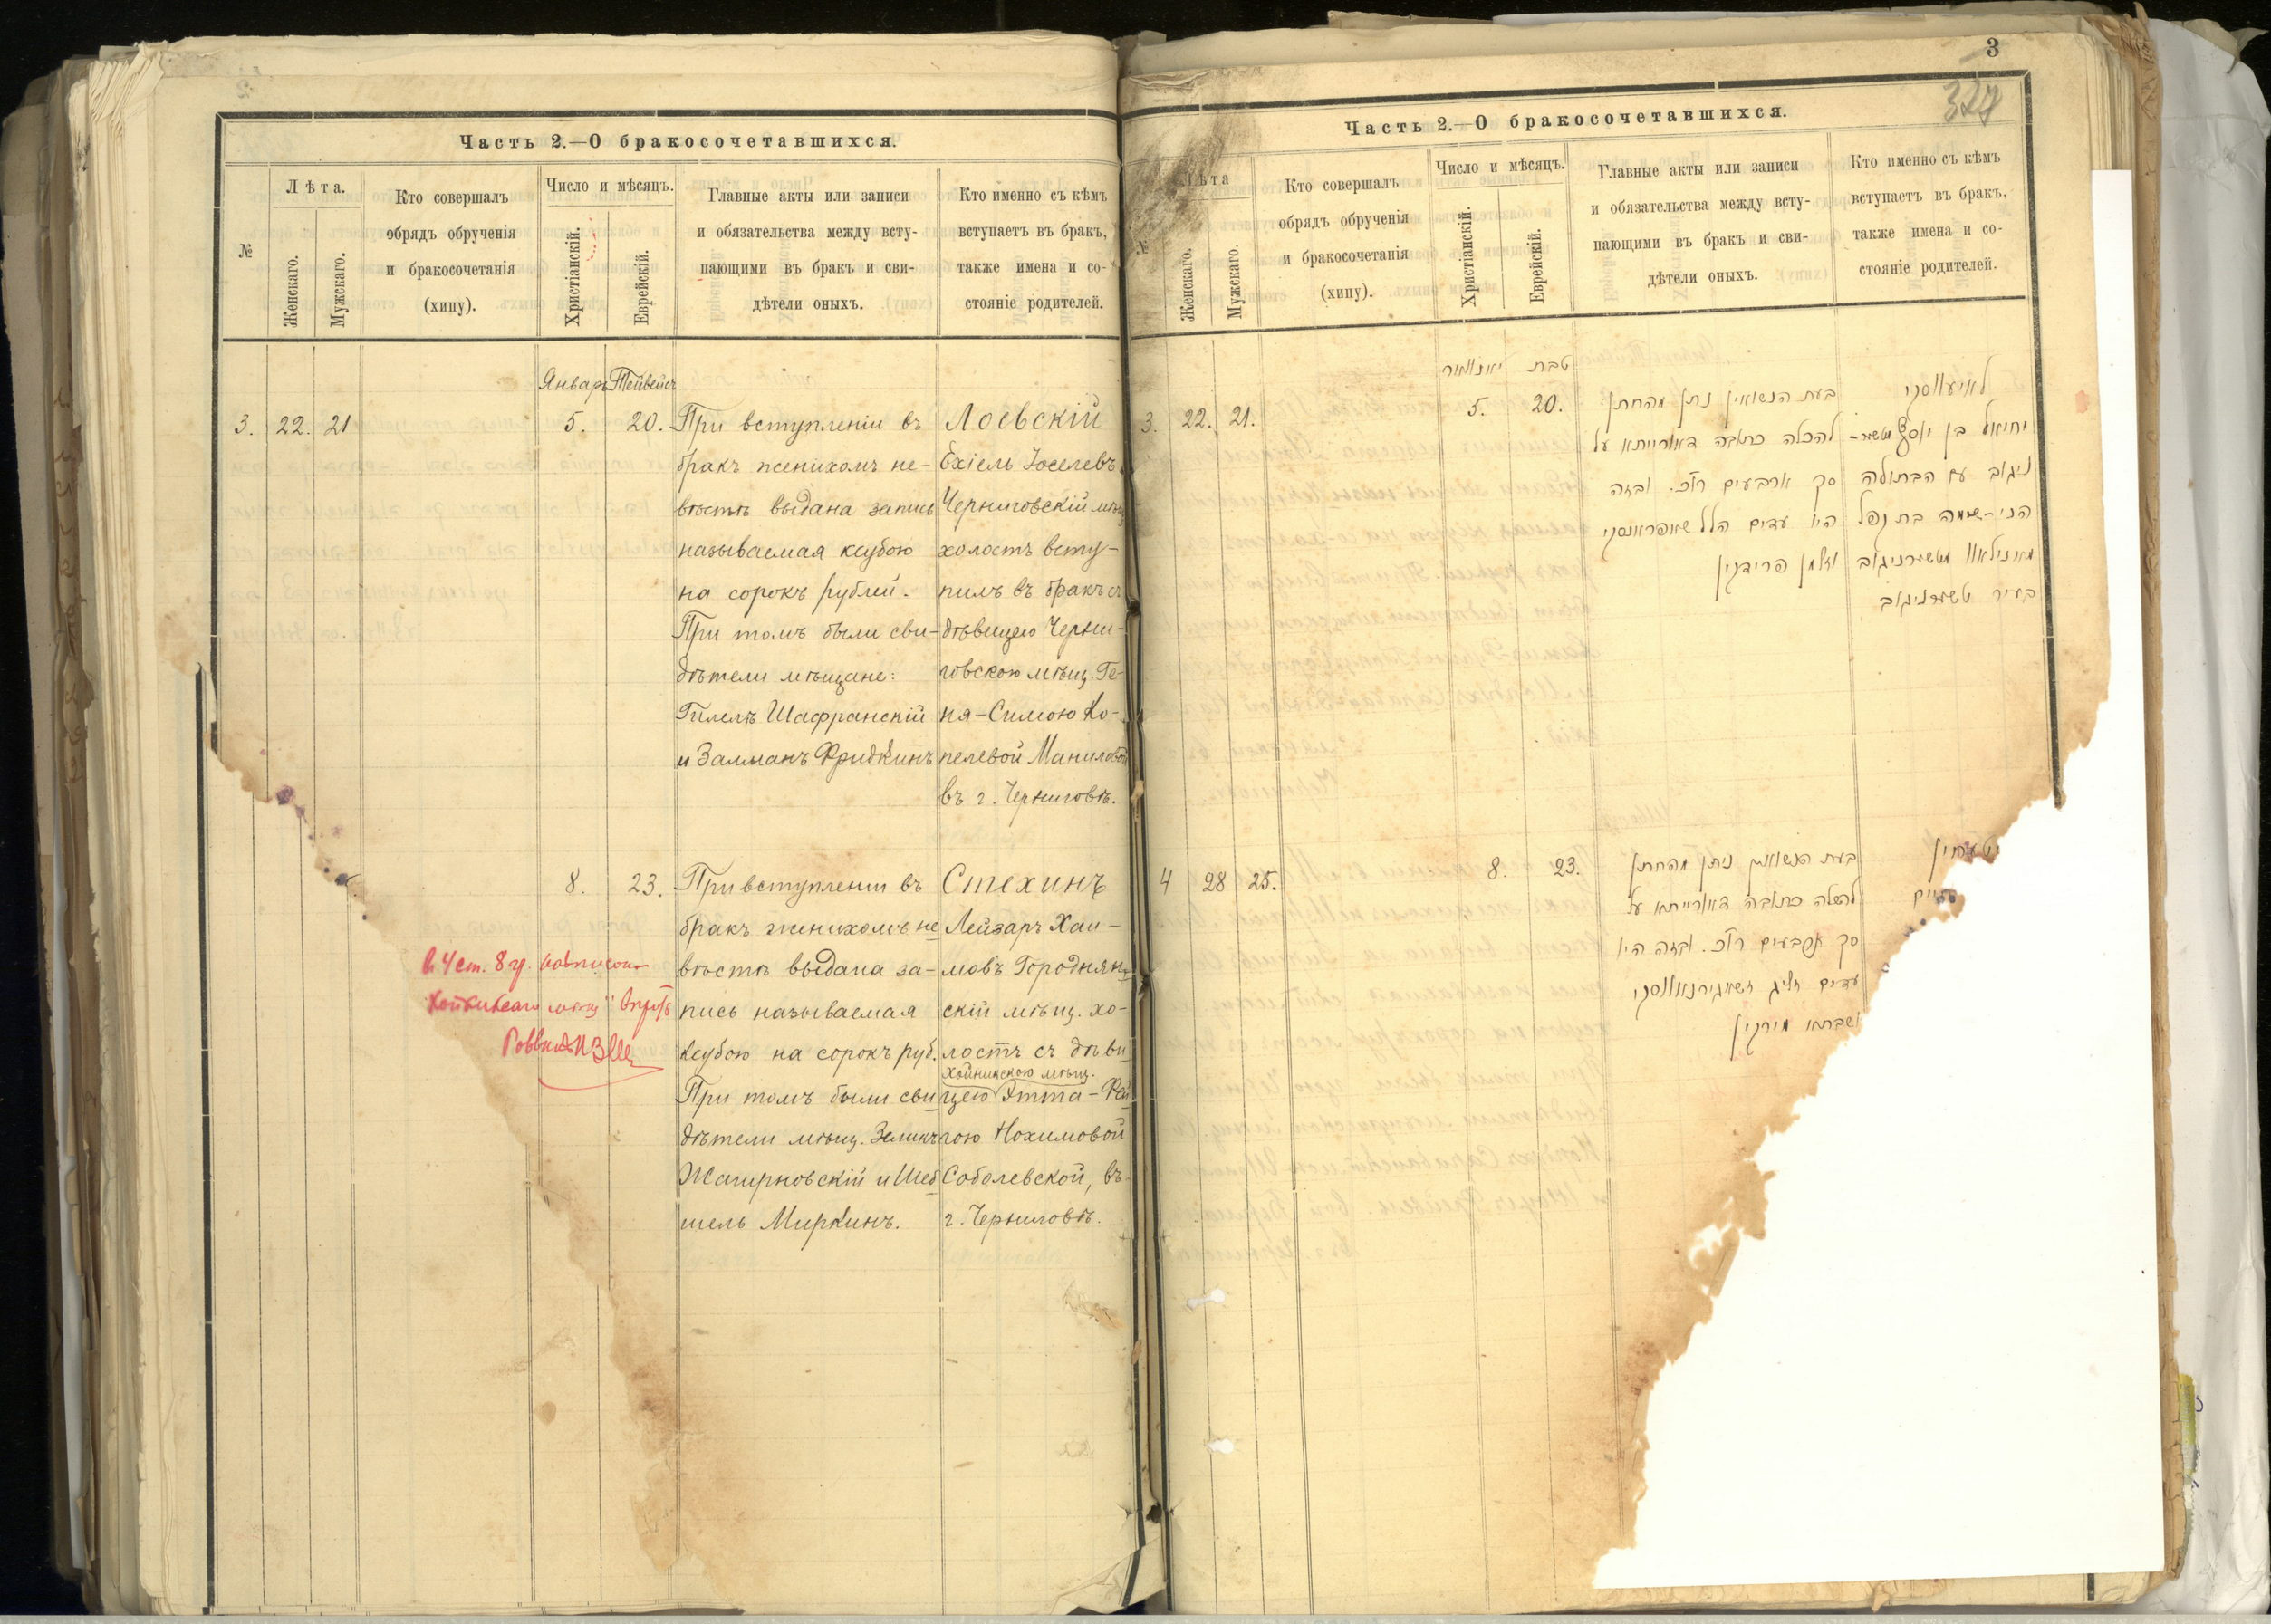 Часть 2.—О бракосочетавшихся.
№
Лѣта.
Женскаго.
Мужскаго.
Кто совершалъ
обрядъ обрученія
и бракосочетанія
(хипу).
Число и мѣсяцъ.
Христіанскій.
Еврейскій.
Главные акты или записи
и обязательства между всту-
пающими въ бракъ и сви-
дѣтели оныхъ.
Кто именно съ кѣмъ
вступаетъ въ бракъ,
также имена и со-
стояніе родителей.
Январь
Тейвейсъ
3. 22. 21
5. 20.
При вступленіи въ
бракъ женихомъ не-
вѣстѣ выдана запись
называемая ксубою
на сорокъ рублей.
При томъ были сви-
дѣтели мѣщане:
Гилель Шафранскій
и Залманъ Фридкинъ
Лоевскій
Ехіель Іоселевъ
Черниговскій мѣщ.
холостъ всту-
пилъ въ бракъ съ
дѣвицею Черни-
говскою мѣщ. Ге-
ня-Симою Ко-
пелевой Маниловой
въ г. Черниговѣ.
8. 23.
При вступленіи въ
бракъ женихомъ не
вѣстѣ выдана за-
пись называемая
ксубою на сорокъ руб.
При томъ были сви
дѣтели мѣщ. Зеликъ
Жагирновскій и Шеб
шель Миркинъ.
Стехинъ
Лейзаръ Хаи-
мовъ Городнян
скій мѣщ. хо-
лостъ съ дѣви
Хойникскою мѣщ.
цею Этта-Рей
гою Нохимовой
Соболевской, въ
г. Черниговѣ.
в 4 ст. 8 гр.
3
327
Часть 2.—О бракосочетавшихся.
№
Лѣта
Женскаго.
Мужскаго.
Кто совершалъ
обрядъ обрученія
и бракосочетанія
(хипу).
Число и мѣсяцъ.
Христіанскій.
Еврейскій.
Главные акты или записи
и обязательства между всту-
пающими въ бракъ и сви-
дѣтели оныхъ.
Кто именно съ кѣмъ
вступаетъ въ бракъ,
также имена и со-
стояніе родителей.
יאנוואר
טבת
3. 22. 21.
5. 20.
בעת הנשואין נתן מהחתן
להכלה כתובה דאורייתא על
סך ארבעים רו"כ. ובזה
היו עדים הלל שאפראנסקי
וזלמן פרידקין
לאיעווסקי
יחיאל בן יוסף
ניגוב עם הבתולה
בעיר טשערניגוב
4 28 25.
8. 23.
בעת הנשואין ניתן מהחתן
להכלה כתובה דאורייתא על
סך ארבעים רו"כ. ובזה היו
עדים
ושבתי מירקין